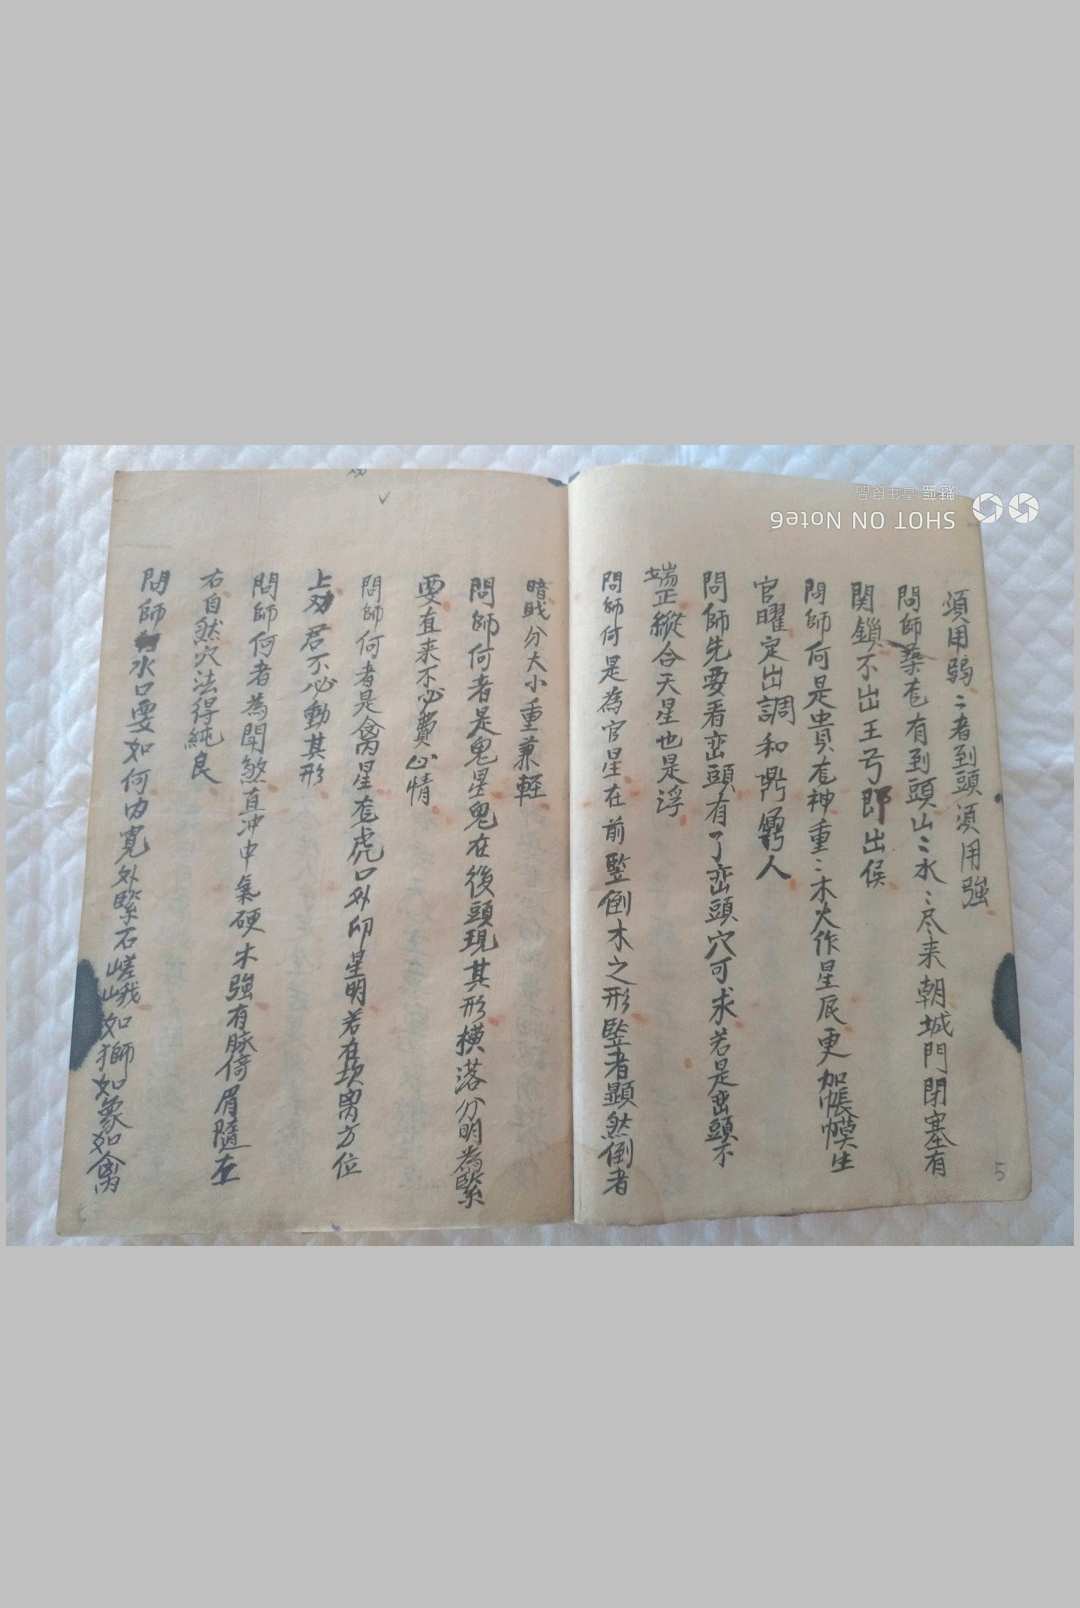 須用弱〻者到頭須用強
問師葬龙有到頭山〻水〻尽来朝城門閉塞有
関鎖不出王弓即出候
問師何是貴龙神重〻木火作星辰更加帳幙生
官曜定出調和鼎鼐人
問師先要看峦頭有了峦頭穴可求若是峦頭不
端正縱合天星也是浮
問師何是為官星在前竪倒木之形竪者顕然倒者
暗戝分大小重兼軽
問師何者是鬼星鬼在後頭現其形横落分明為緊
要直来不必費心情
問師何者是禽星龙虎口外卬星明若在坎离方位
上 君不必動其形
問師何者為閗煞直冲中氣硬木強有脉倚眉隨左
右自然穴法得純良
問師水口要如何内寛外緊石嵯峨如獅如象如禽
5
SHOT ON Note6